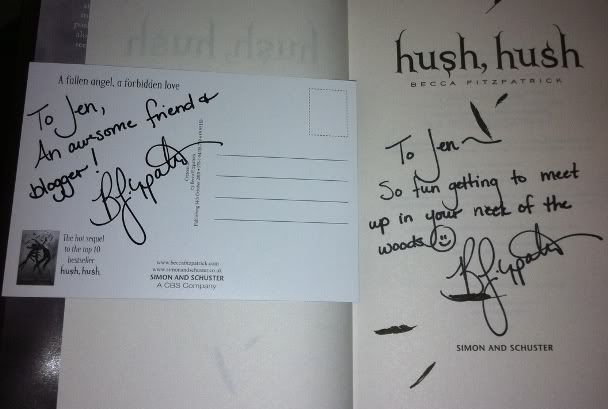 A fallen angel, a forbidden love
To Jen,
An awesome friend &
blogger!
The hot sequel
to the top 10
bestseller
hush, hush.
www.beccafitzpatrick.com
www.simonandschuster.co.uk
SIMON AND SCHUSTER
A CBS Company
hush, hush
hush, hush
BECCA FITZPATRICK
To Jen~
So fun getting to meet
up in your neck of the
woods
SIMON AND SCHUSTER